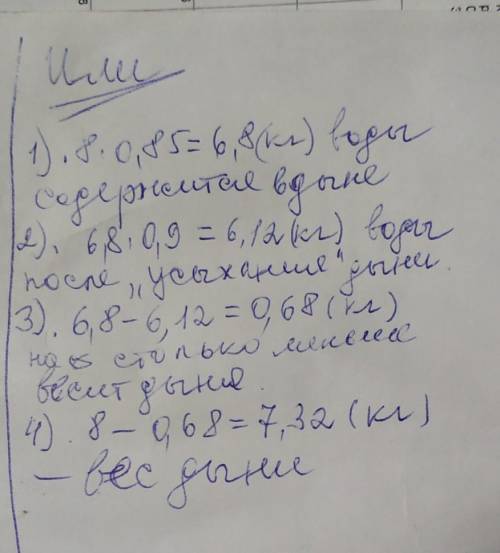 Или
1). 8 · 0,85 = 6,8 (кг) воды
содержится в дыне
2). 6,8 · 0,9 = 6,12 (кг) воды
после „усыхания" дыни.
3). 6,8 – 6,12 = 0,68 (кг)
на столько меньше
весит дыня.
4). 8 – 0,68 = 7,32 (кг)
– вес дыни